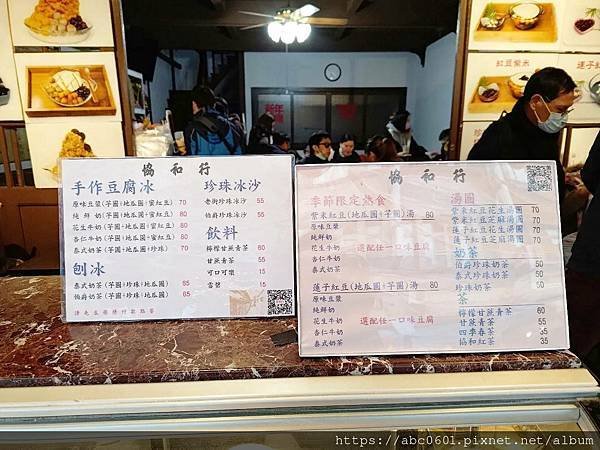 協和行
手作豆腐冰
原味豆漿(芋圓+地瓜圓+蜜紅豆) 70
純鮮奶(芋圓+地瓜圓+蜜紅豆) 80
花生牛奶(芋圓+地瓜圓+蜜紅豆) 80
杏仁牛奶(芋圓+地瓜圓+蜜紅豆) 80
泰式奶茶(芋圓+地瓜圓+珍珠) 70
刨冰
泰式奶茶(芋圓+珍珠+地瓜圓) 65
伯爵奶茶(芋圓+珍珠+地瓜圓) 65
珍珠冰沙
老街珍珠冰沙 55
伯爵珍珠冰沙 55
飲料
檸檬甘蔗青茶 60
甘蔗青茶 55
可口可樂 15
雪碧 15
協和行
季節限定熱食
紫米紅豆(地瓜圓+芋圓)湯 80
原味豆漿
純鮮奶
花生牛奶
杏仁牛奶
泰式奶茶
選配任一口味豆腐
蓮子紅豆(地瓜圓+芋圓)湯 80
原味豆漿
純鮮奶
花生牛奶
杏仁牛奶
泰式奶茶
選配任一口味豆腐
湯圓
紫米紅豆花生湯圓 70
紫米紅豆芝麻湯圓 70
蓮子紅豆花生湯圓 70
蓮子紅豆芝麻湯圓 70
奶茶
伯爵珍珠奶茶 50
泰式珍珠奶茶 50
珍珠奶茶 50
茶
檸檬甘蔗青茶 60
甘蔗青茶 55
四季春茶 35
協和紅茶 35
紅豆紫米
https://abc0601.pixnet.net/album